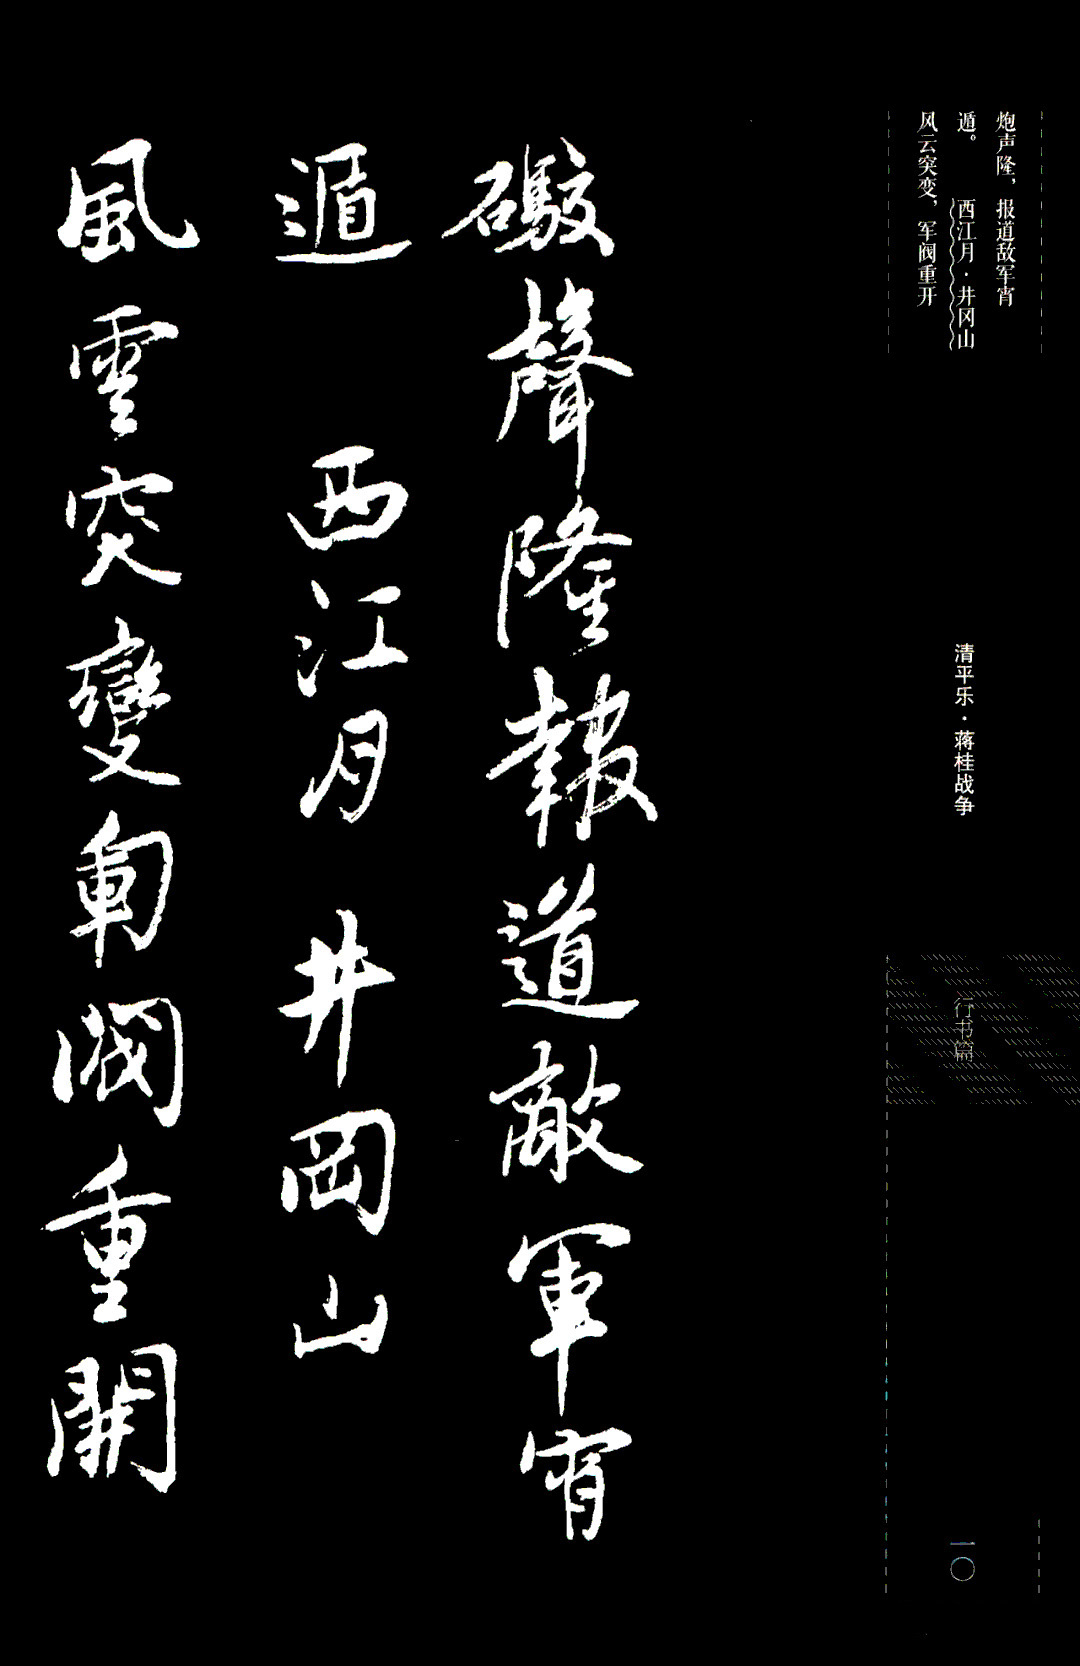 炮声隆，报道敌军宵
遁。 西江月·井冈山
风云突变，军阀重开
清平乐·蒋桂战争
行书篇
一〇
礮聲隆報道敵軍宵
遁 西江月 井岡山
風雲突變軍閥重開